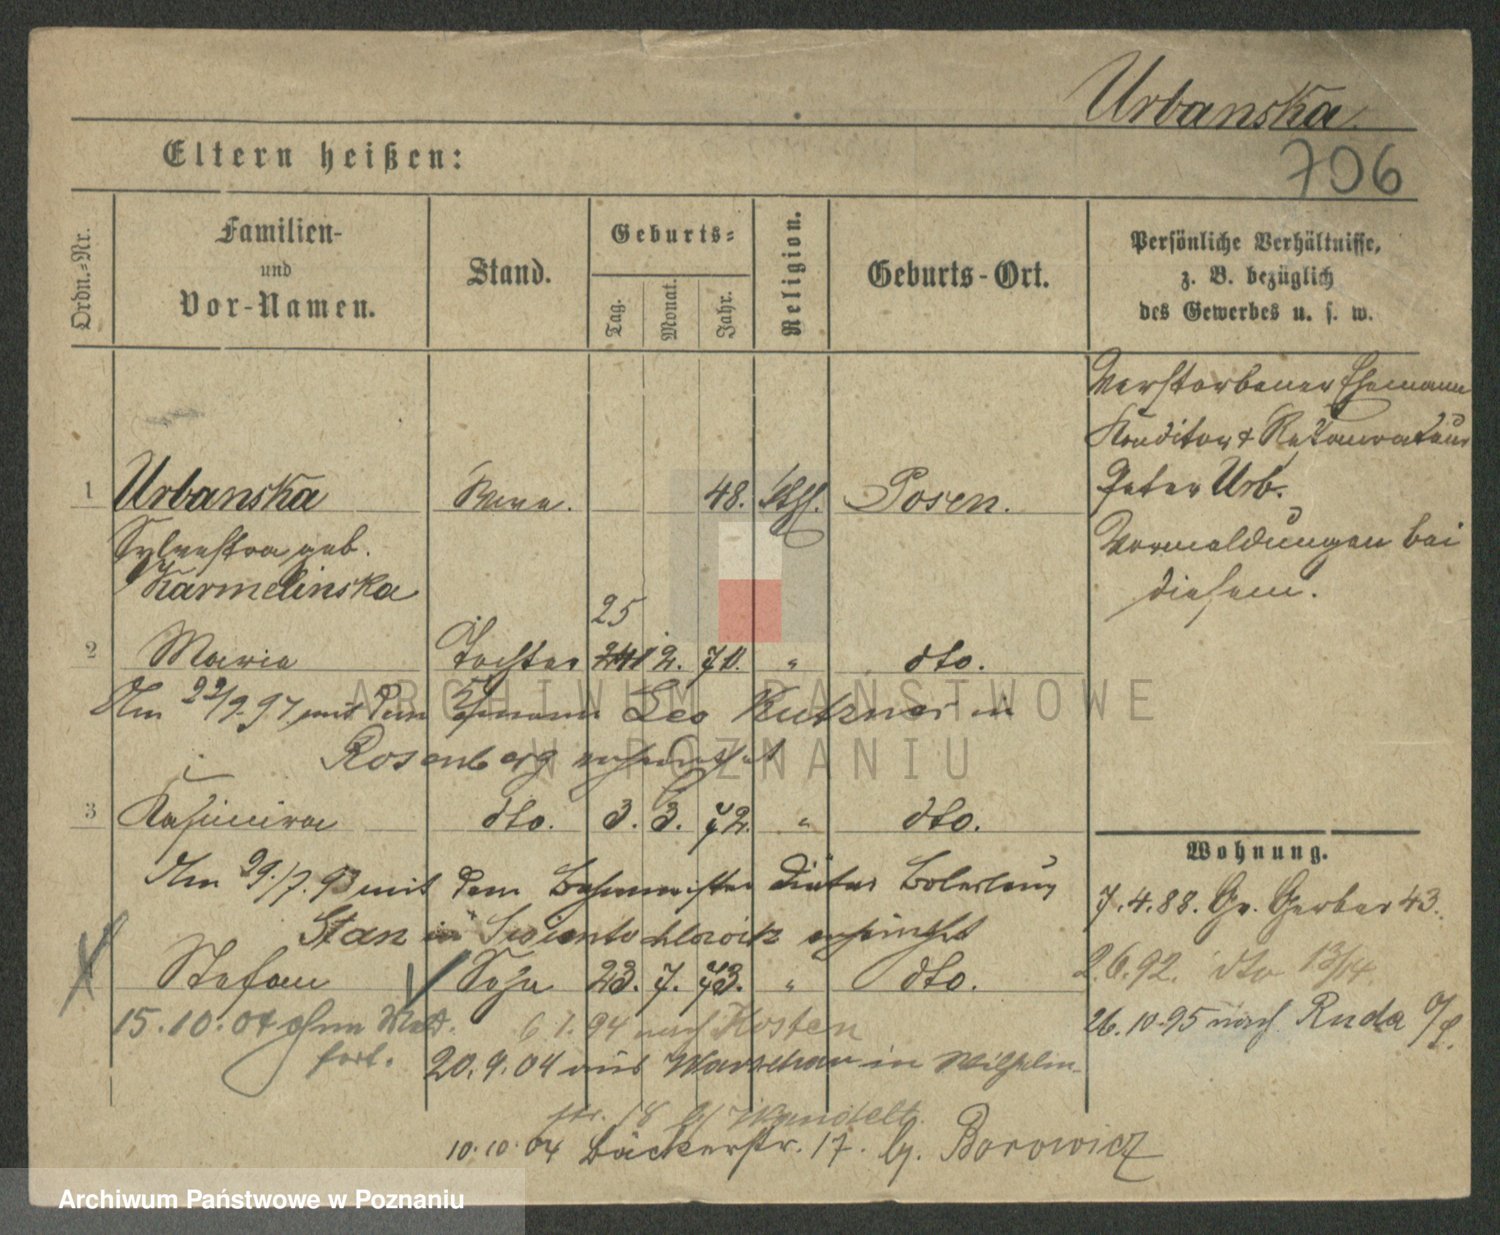 Urbanska
706
Eltern heißen:
Ordn.-Nr.
Familien-
und
Vor-Namen.
Stand.
Geburts-
Tag.
Monat.
Jahr.
Religion.
Geburts-Ort.
Persönliche Verhältnisse,
z. B. bezüglich
des Gewerbes u. s. w.
Verstorbener Ehemann
Konditor & Restaurateur
Peter Urb.
Vormeldungen bei
diesem.
1 Urbanska Wwe. 48. kth. Posen.
Sylvestra geb.
Karmelinska
25
2 Maria Tochter 24 12. 70. " dto.
Am 22/9.97 mit dem Ehemann Leo Kutzner in
Rosenberg verheirathet
3 Kasimira dto. 3. 3. 72. " dto.
Am 29./7.93 mit dem Bahnmeister Boleslaus
Stan in verheirathet
Stefan Sohn 23. 7. 73. " dto.
15.10.04 ohne Meld.
fort.
6 1.94 nach Kosten
20.9.04 aus Warschau in Wilhelm-
str. 18 b/ Wandelt
10.10.04 Bäckerstr. 17. b/. Borowicz
Wohnung.
7.4.88. Gr. Gerber 43.
2.6.92. dto 13/14.
26.10.95 nach Ruda O/S.
ARCHIWUM PAŃSTWOWE
W POZNANIU
Archiwum Państwowe w Poznaniu